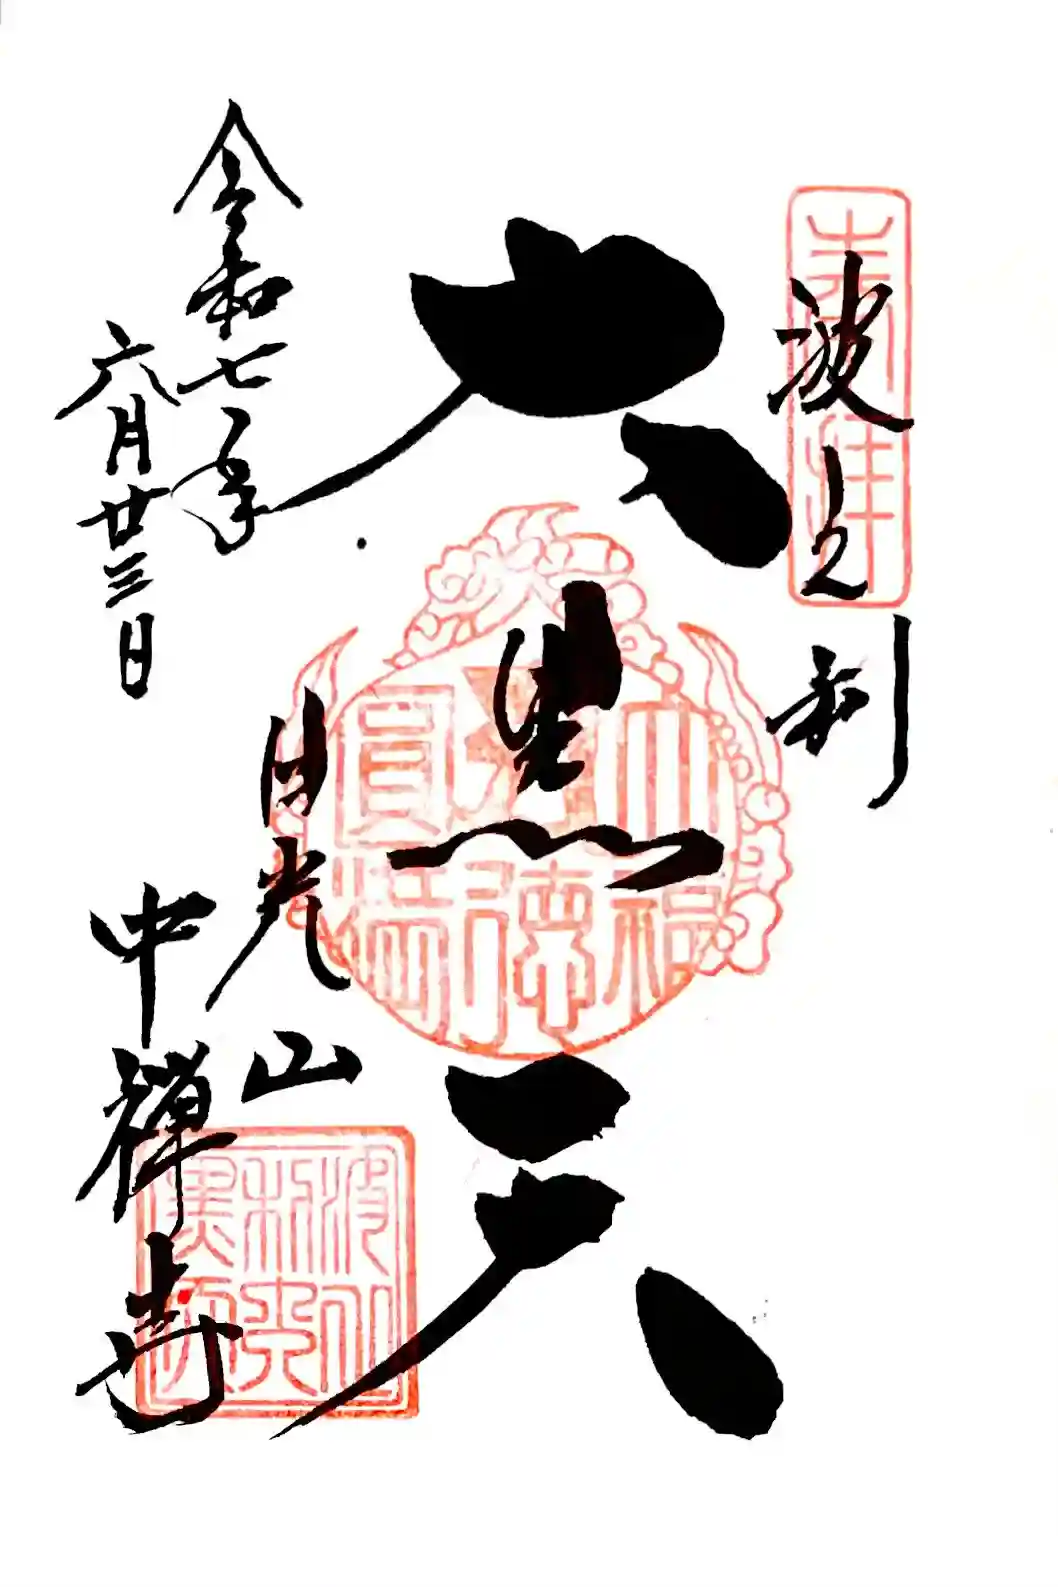 奉拝
波之利
大黒天
令和七年
六月廿三日
日光山
中禅寺